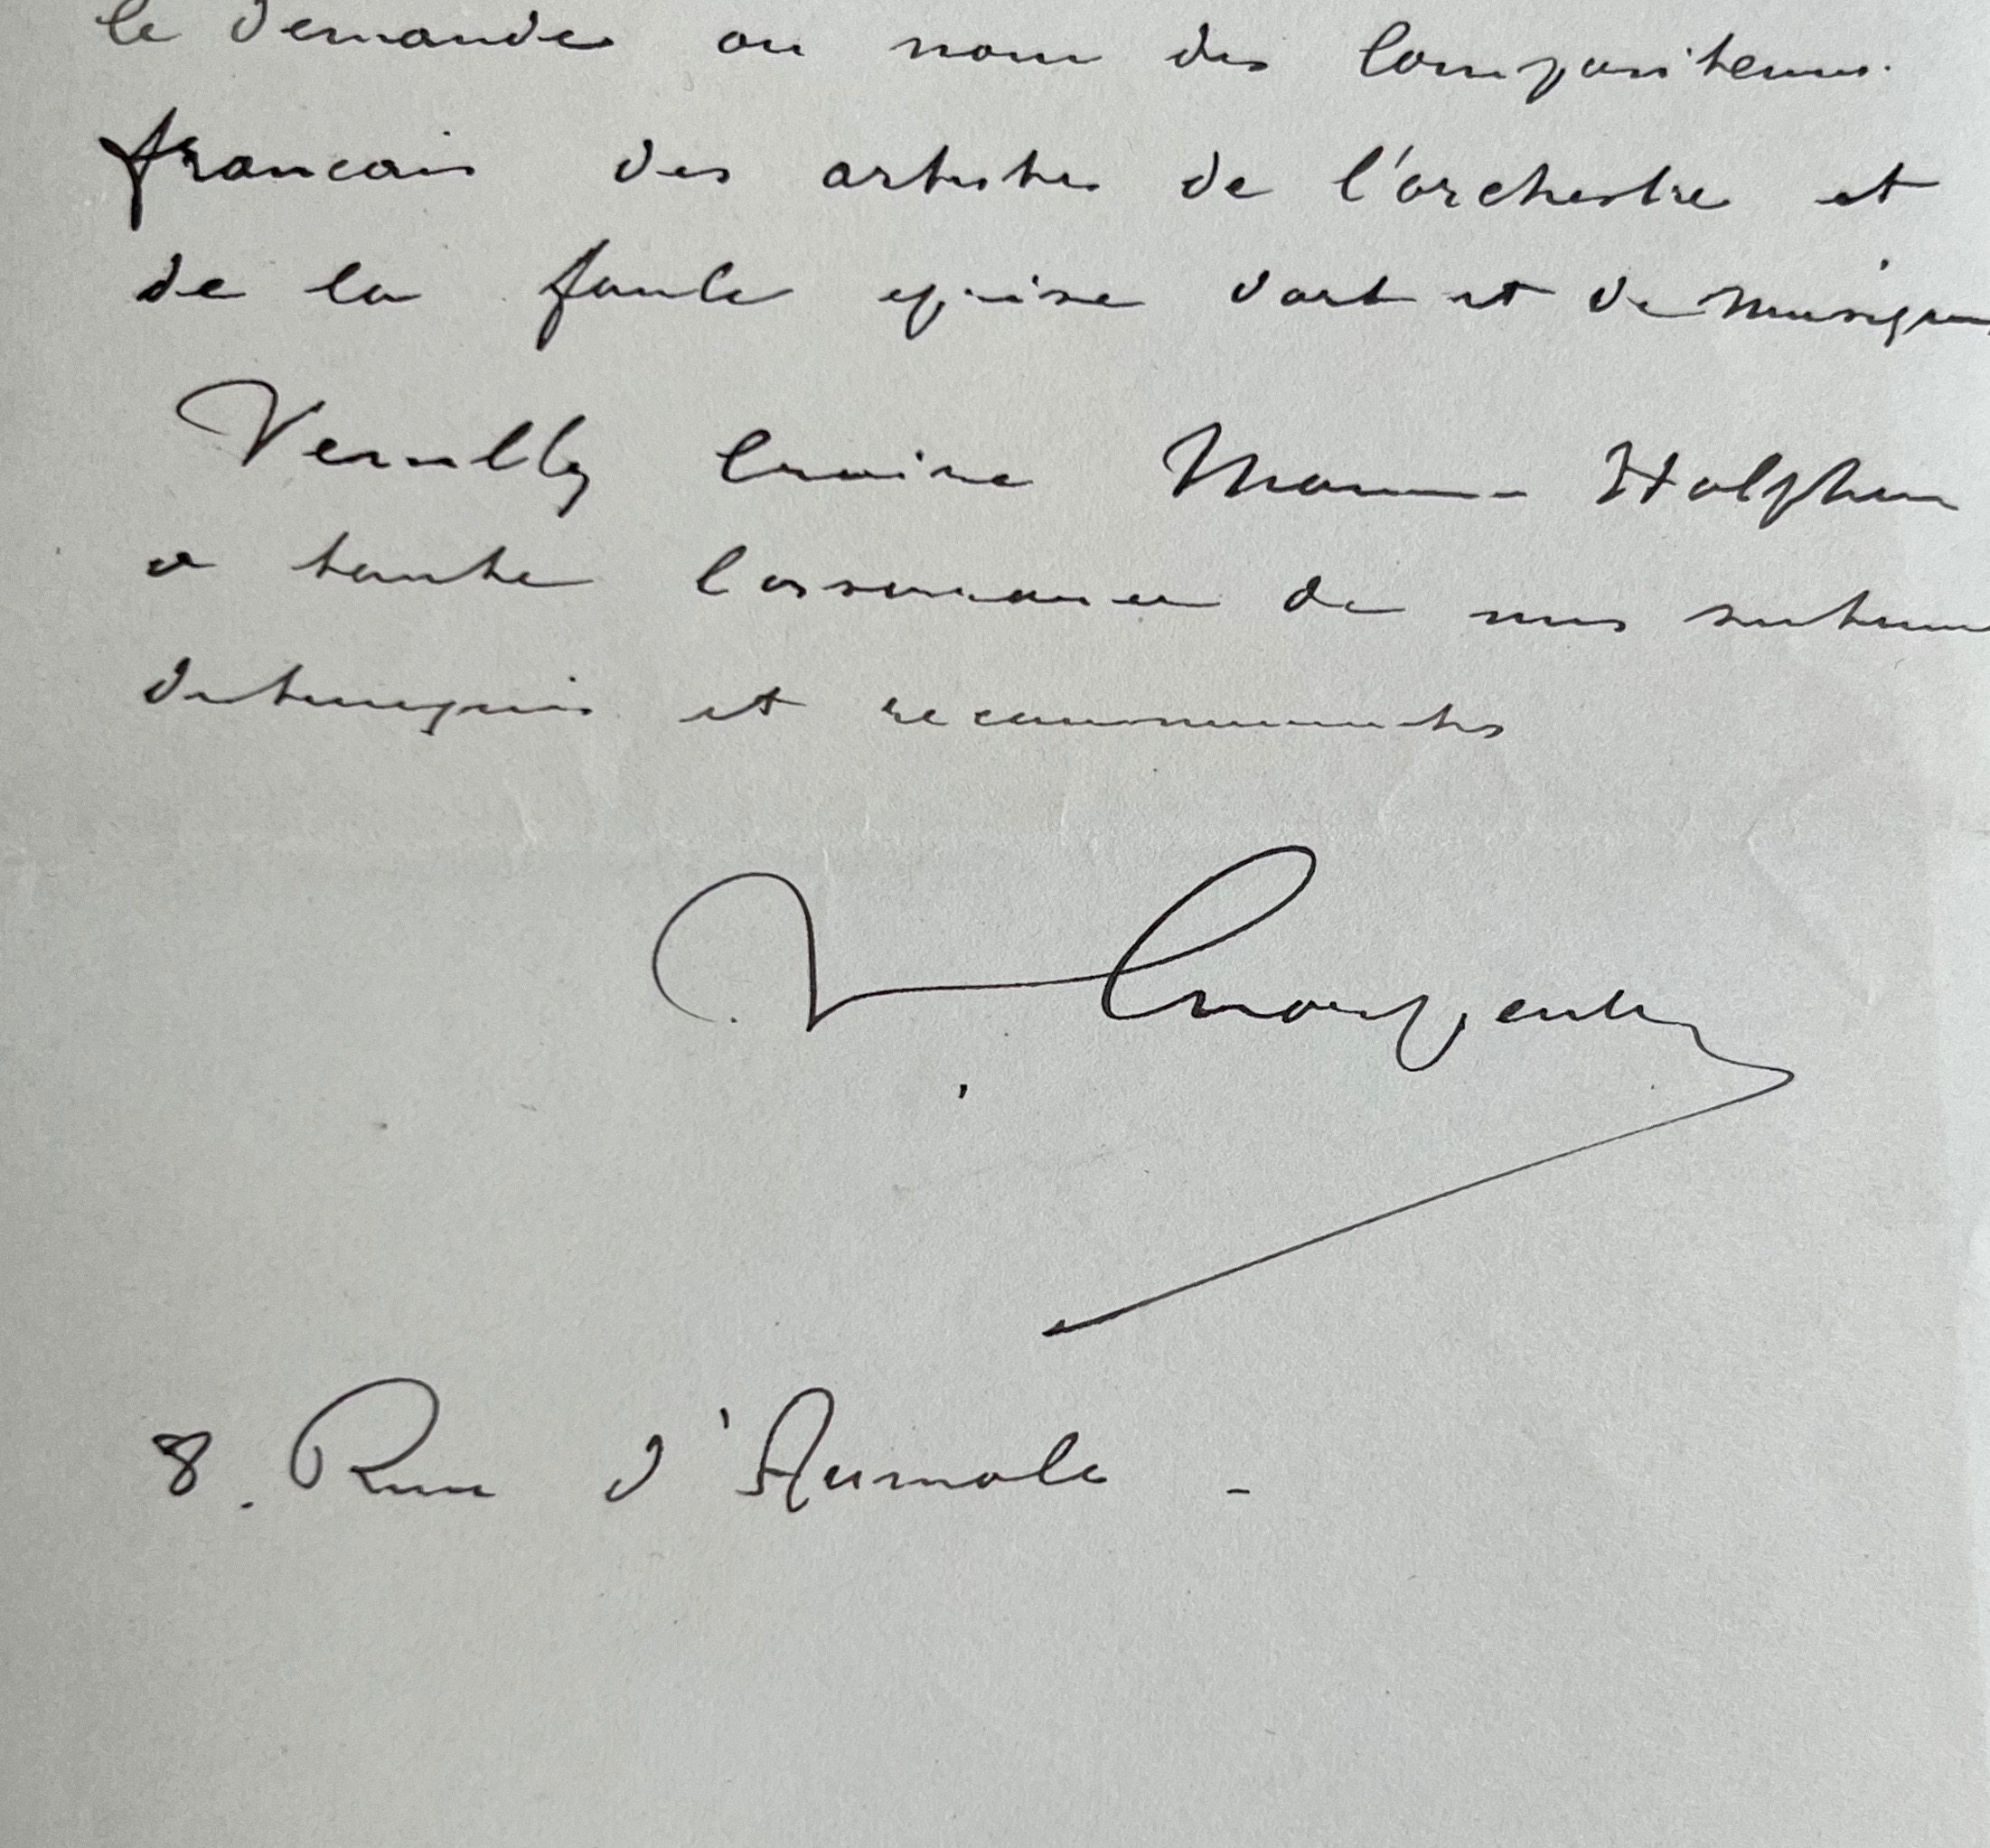 le demande au nom des compositeurs
francais des artistes de l'orchestre et
de la foule eprise dart et de musique
Veuillez croire Madame Halphen
a toute l'assurance de mes sentiments
distingués et reconnaissants
V. Charpentier
8. Rue d'Aumale -